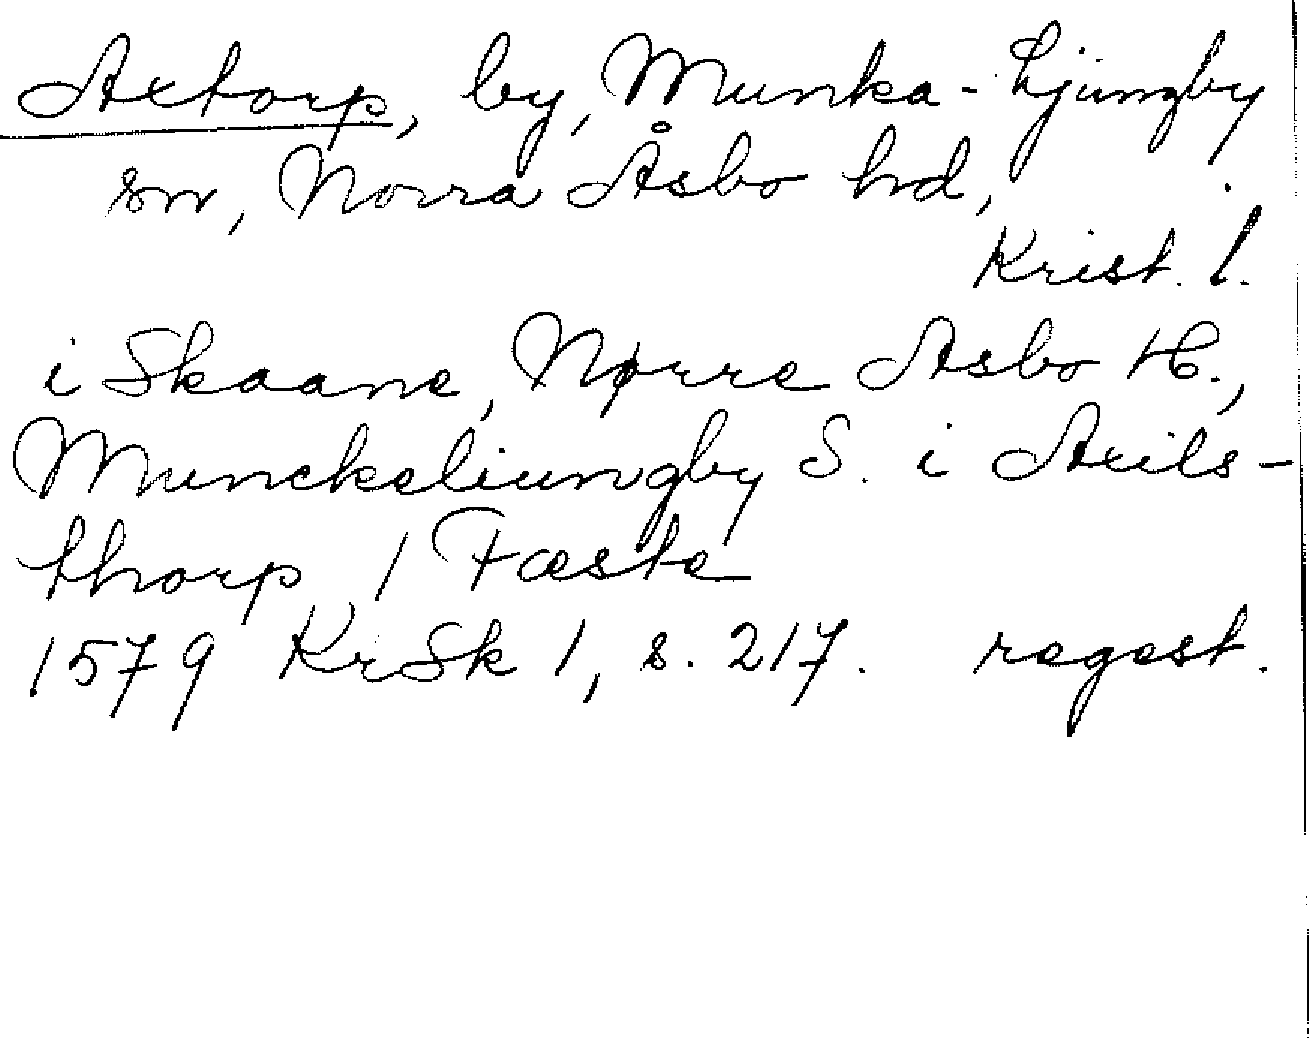 Axtorp, by, Munka-Ljungby
sn, Norra Åsbo hd,
Krist. l.
i Skaane, Nørre Asbo H.,
Munckeliungby S. i Axils-
thorp 1 Fæste
1579 KrSk 1, s. 217. regest.